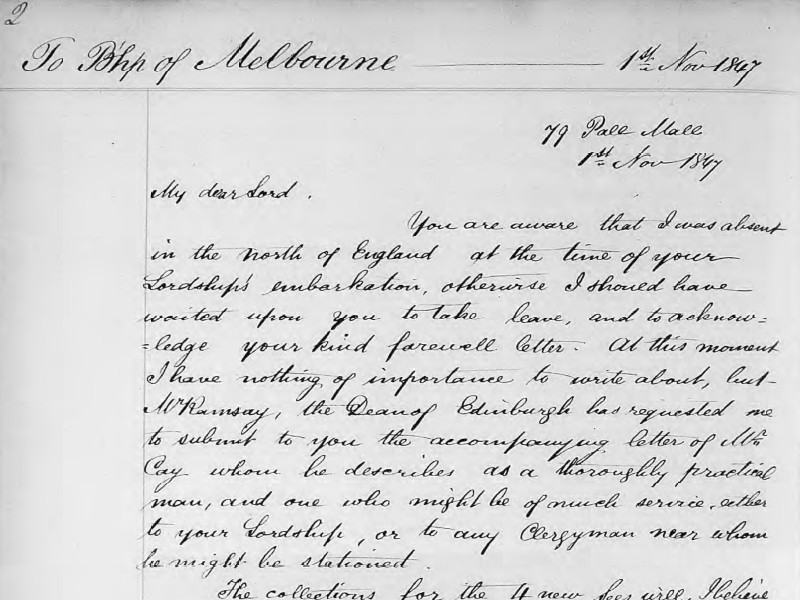 2
To Bhp of Melbourne 1st Nov 1847
79 Pall Mall
1st Nov 1847
My dear Lord.
You are aware that I was absent
in the north of England at the time of your
Lordship's embarkation, otherwise I should have
waited upon you to take leave, and to acknow=
=ledge your kind farewell letter. At this moment
I have nothing of importance to write about, but
Mr Ramsay, the Dean of Edinburgh has requested me
to submit to you the accompanying letter of Mr
Cay whom he describes as a thoroughly practical
man, and one who might be of much service, either
to your Lordship, or to any Clergyman near whom
he might be stationed.
The collections for the 4 new sees will, I believe